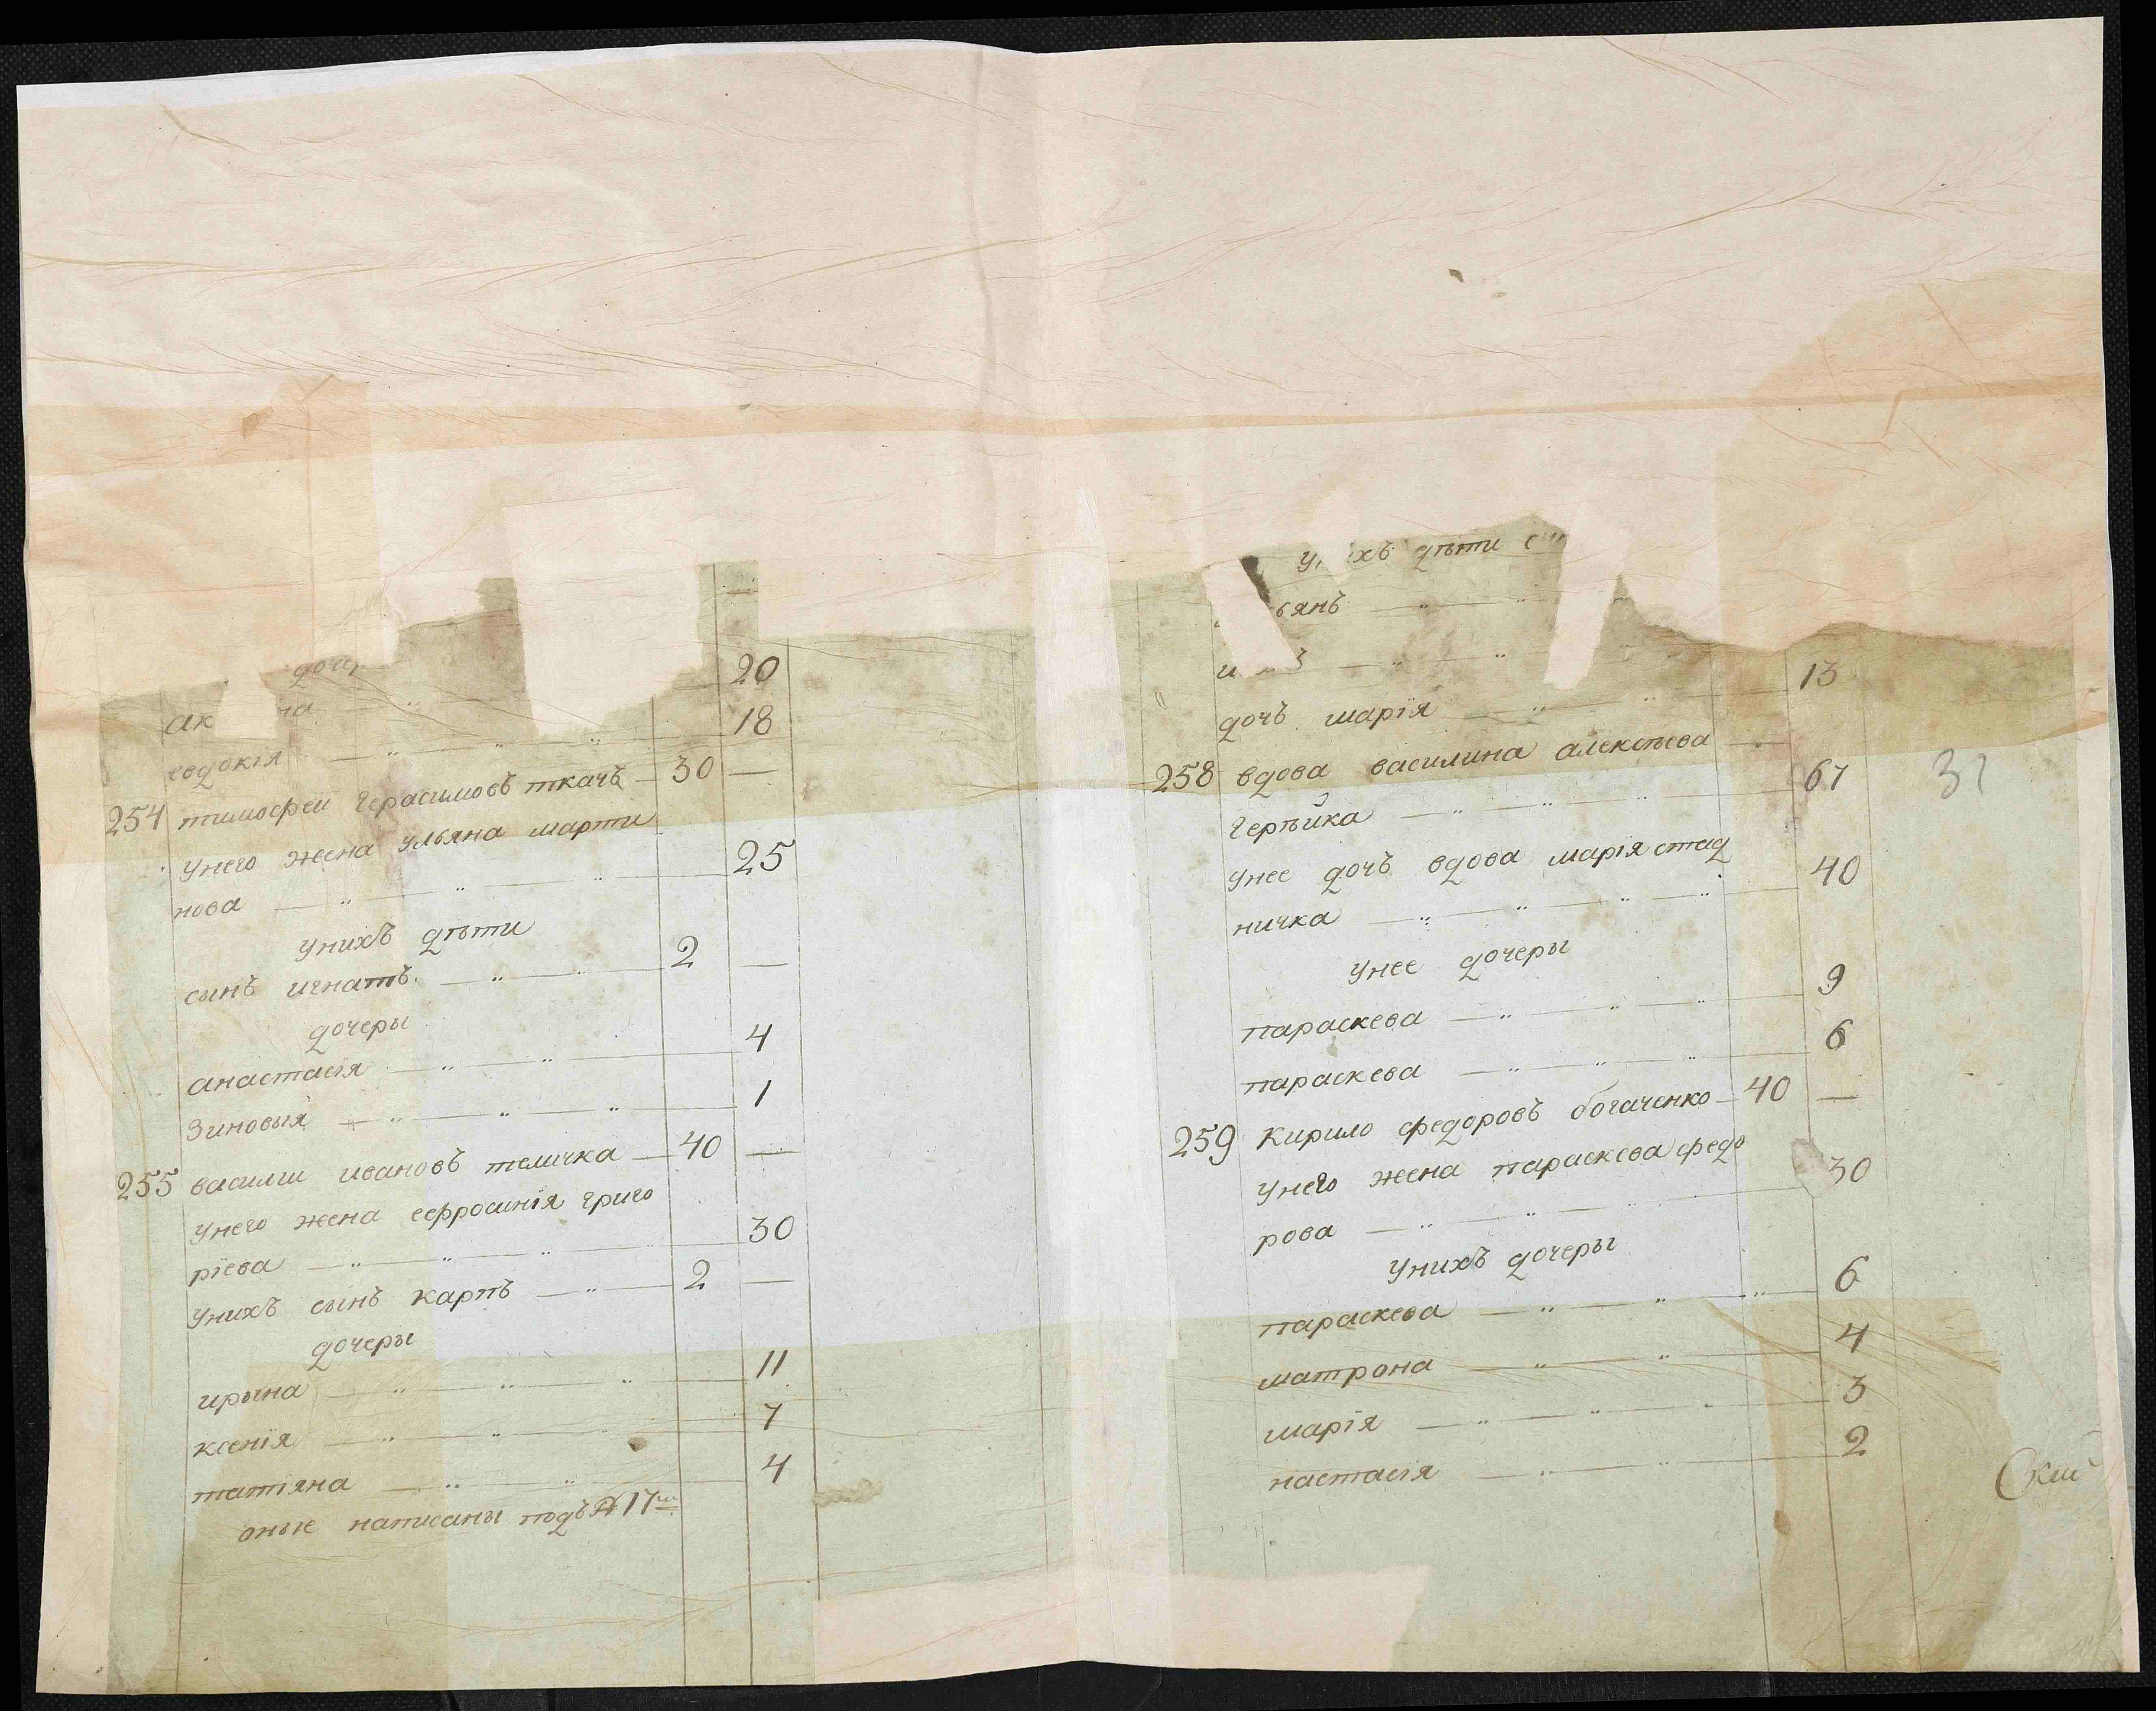 доче
ак на 20
евдокія 18
254 тимофеи герасимовъ ткачъ 30 —
унего жена ульяна марти
нова 25
унихъ дѣти
сынъ игнатъ 2 —
дочеры
анастасія 4
зиновыя 1
255 василии ивановъ теличка 40 —
унего жена ефросинія григо
ріева 30
унихъ сынъ карпъ 2 —
дочеры
ирына 11
ксенія 7
татіяна 4
оные написаны подъ № 17м
у хъ дѣти
ьянъ
дочъ марія 13
258 вдова василина алексѣева
герѣйка 67
унее дочъ вдова марія стад
ничка 40
унее дочеры
параскева 9
параскева 6
259 кирило федоровъ богаченко 40 —
унего жена параскева федо
рова 30
унихъ дочеры
параскева 6
матрона 4
марія 3
настасія 2
31
Ский